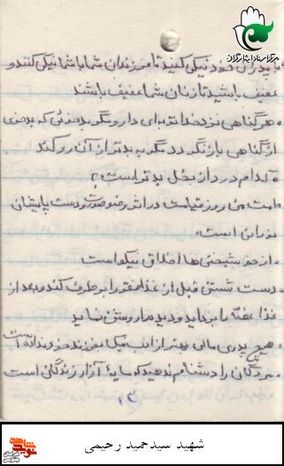 با پدران خود نیکی کنید تا فرزندان شما با شما نیکی کنند و
عفیف باشید تا زنان شما عفیف باشند
• هر گناهی نزد خدا توبه‌ای دارد مگر بدخوئی که بدخوی
از گناهی باز نگردد مگر به بدتر از آن رو کند
• کدام درد از بخل بدتر است؟
• امت من روز قیامت در اثر وضو صورت و دست و پایشان
نورانی است
• از خوشبختی‌ها اخلاق نیکو است
• دست شستن قبل از غذا فقر را برطرف کند و بعد از
غذا را بزداید و دید را روشن نماید
• هیچ پدری مالی بهتر از ادب نیک به فرزند خود نداده است
• مردگان را دشنام ندهید که مایهٔ آزار زندگان است
۱۳
شهید سیدحمید رحیمی
نوید شاهد